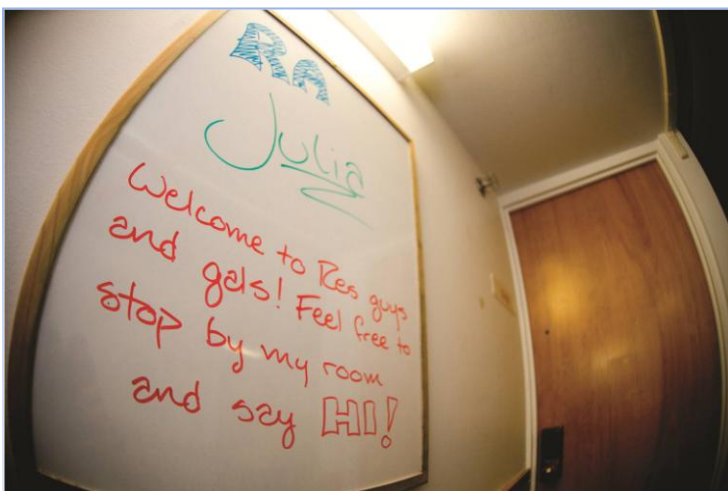 RA
Julia
Welcome to Res guys
and gals! Feel free to
stop by my room
and say HI!